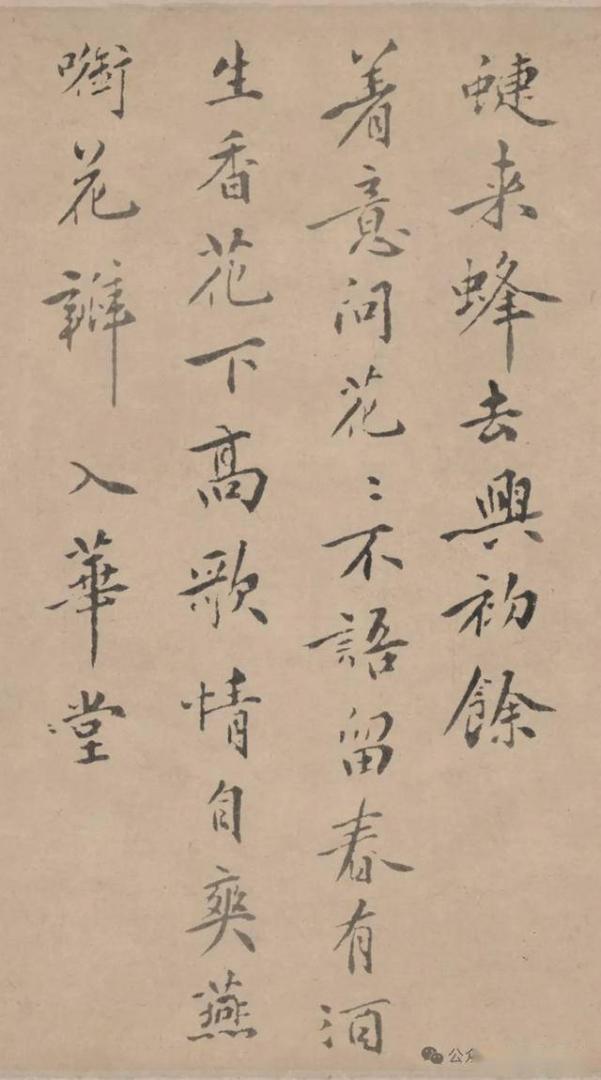 蜨来蜂去興初餘
着意问花〻不語留春有酒
生香花下高歌情自爽燕
啣花瓣入華堂
公众